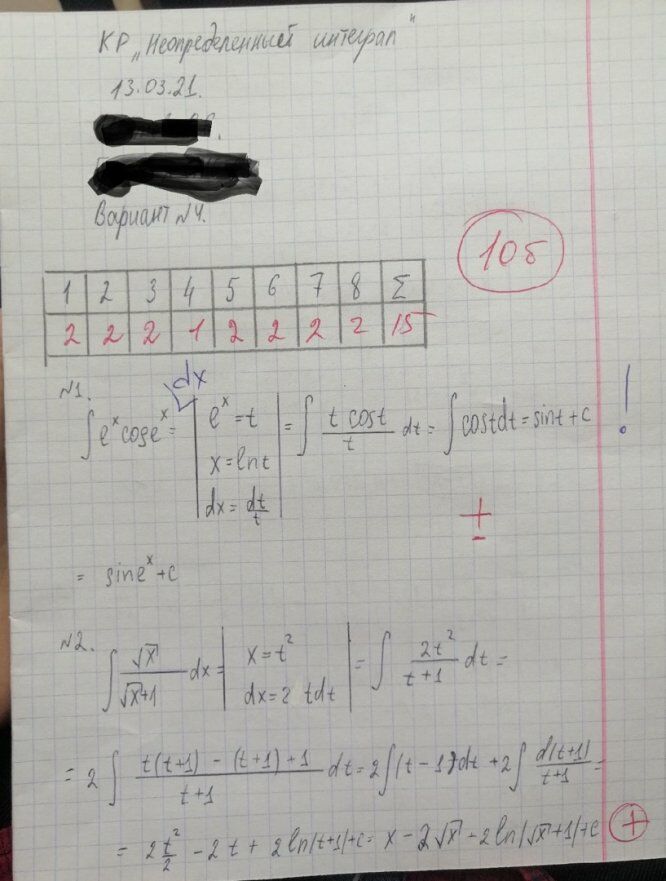 КР „Неопределенный интеграл"
13.03.21.
Вариант №4.
10б
1 2 3 4 5 6 7 8 Σ
2 2 2 1 2 2 2 2 15
№1.
dx
∫ e^x cos e^x = | e^x = t | = ∫ (t cos t)/t dt = ∫ cos t dt = sin t + c !
x = ln t
dx = dt/t
±
= sin e^x + c
№2.
∫ √x/(√x+1) dx = | x = t^2 | = ∫ 2t^2/(t+1) dt =
dx = 2 t dt
= 2 ∫ (t(t+1) - (t+1) + 1)/(t+1) dt = 2 ∫ (t - 1) dt + 2 ∫ d(t+1)/(t+1) =
= 2 t^2/2 - 2t + 2 ln|t+1| + c = x - 2√x - 2 ln|√x+1| + c +